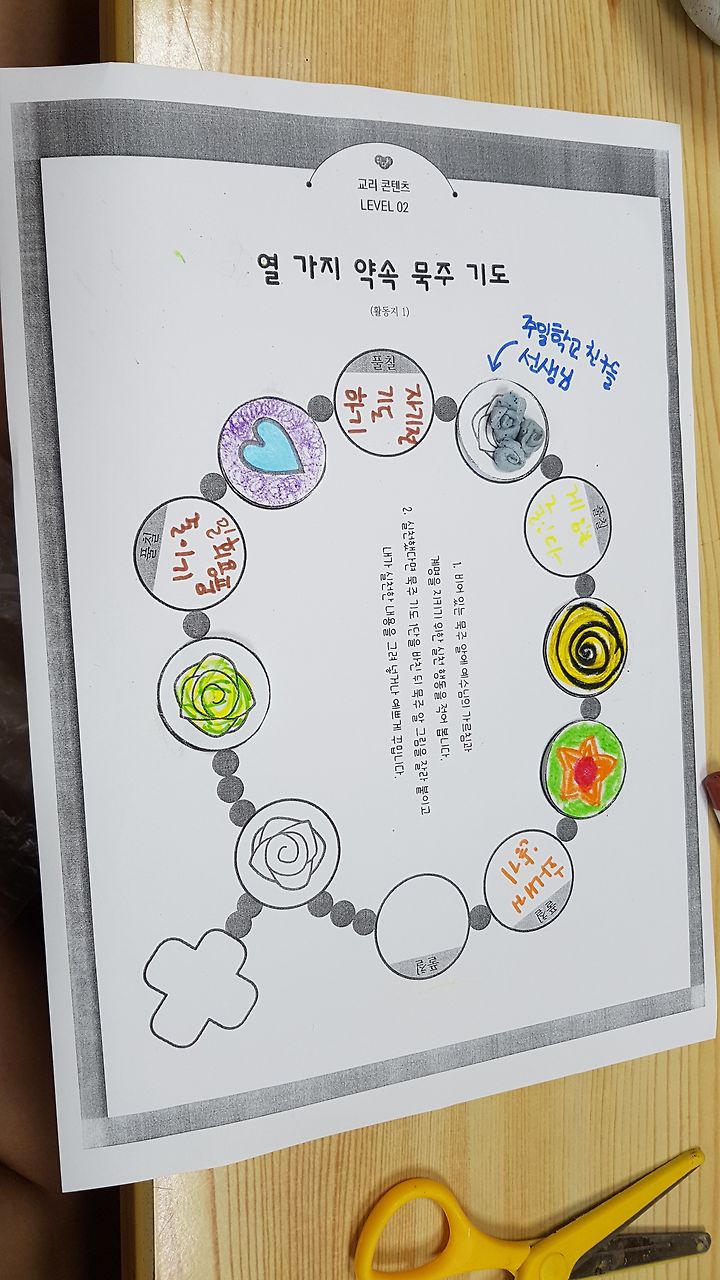 교리 콘텐츠
LEVEL 02
열 가지 약속 묵주 기도
(활동지 1)
주일학교 친구들
선생님
풀칠
자기전
기도
하기
풀칠
일회용품
줄이기
풀칠
풀칠
짜증내지
않기
풀칠
1. 비어 있는 묵주 알에 예수님의 가르침과
계명을 지키기 위한 실천 행동을 적어 봅니다.
2. 실천했다면 묵주 기도 1단을 바친 뒤 묵주 알 그림을 잘라 붙이고
내가 실천한 내용을 그려 넣거나 예쁘게 꾸밉니다.